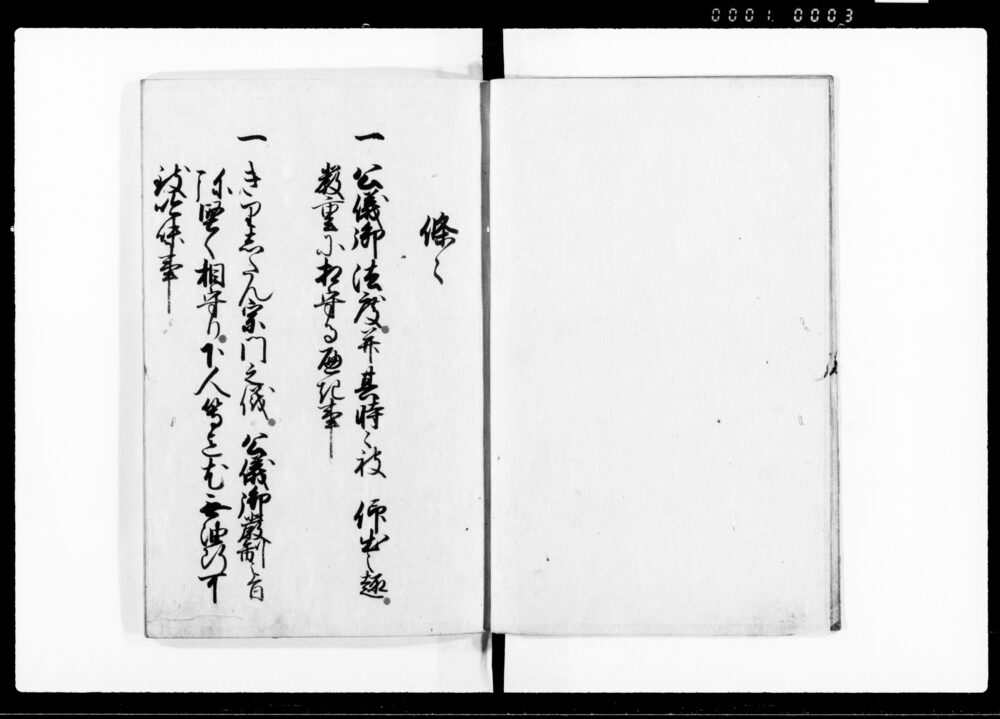 0001. 0003
條々
一 公儀御法度并其時々被 仰出之趣
厳重ニ相守る遍記事
一 きりしたん宗門之儀 公儀御厳制之旨
弥堅く相守り下人等迄茂無油断可
致吟味事